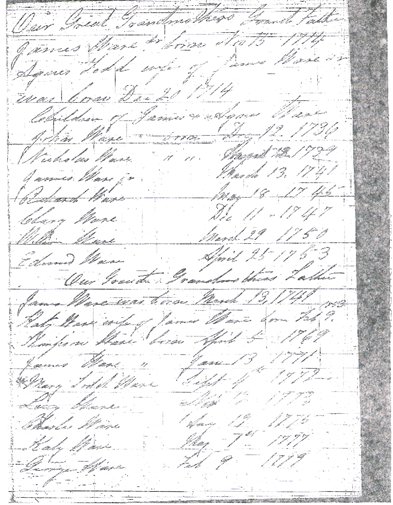 Our Great Grandmothers Grand Father
James Ware was born Nov 15 1714
Agnes Todd wife of James Ware
was born Dec 20 1714
Children of James & Agnes Ware
John Ware born Dec 12, 1736
Nicholas Ware " " August 1739
James Ware jr. March 13, 1741
Richard Ware May 18 1745
Clary Ware Dec 11 - 1747
William Ware March 29 1750
Edmund Ware April 25 1753
Our Great Grandmothers Father
James Ware was born March 13, 1741
Katy Ware wife of James Ware born Feb 9, 1753
Thompson Ware born April 5 1769
James Ware " Jan 13 1771
Mary Todd Ware Sept 9th 1772
Lucy Ware 1773
Charles Ware 1775
Katy Ware May 7th 1777
George Ware Feb 9 1779